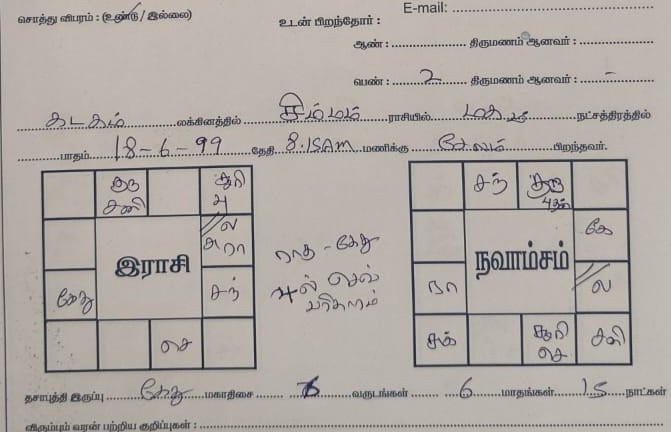 சொத்து விபரம் : (உண்டு / இல்லை)
E-mail: 
உடன் பிறந்தோர் :
ஆண் : திருமணம் ஆனவர் :
பெண் : 2 திருமணம் ஆனவர் : -
கடகம் லக்கினத்தில் சிம்மம் ராசியில் மகம் நட்சத்திரத்தில்
பாதம் 18-6-99 தேதி 8.15AM மணிக்கு சேலம் பிறந்தவர்.
குரு சனி
சூரி பு
ல சு ரா
இராசி
கேது
சந்
செ
ராகு - கேது
செவ்
பரிகாரம்
சந்
குரு
கே
நவாம்சம்
ரா
ல
சுக்
சூரி செ
சனி
தசாபுத்தி இருப்பு கேது மகாதிசை வருடங்கள் 6 மாதங்கள் 15 நாட்கள்
விரும்பும் வரன் பற்றிய குறிப்புகள் :